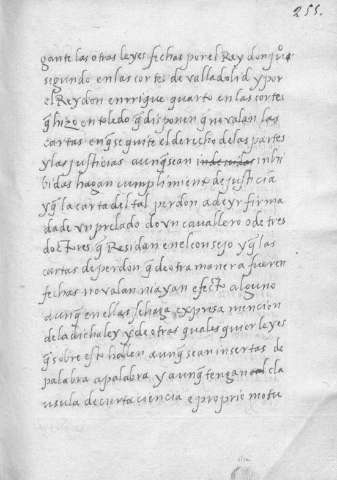 255.
gante las otras leyes fechas por el Rey don juº
segundo en las cortes de valladolid y por
el Rey don enrrique quarto en las cortes
q̃ hizo en toledo q̃ disponen q̃ no valan las
cartas en q̃ se quite el derecho de las partes
y las justicias aunq̃ sean inhi
bidas hagan cumplimiento de justicia
y q̃ la carta del tal perdon a de yr firma
da de vn prelado de vn cavallero o de tres
doctores q̃ Residan en el consejo y q̃ las
cartas de perdon q̃ de otra manera fueren
fechas no valan ni ayan efecto alguno
aunq̃ en ellas se haga expresa mencion
de la dicha ley y de otras quales quier leyes
q̃ sobre esto hablen aunq̃ sean insertas de
palabra a palabra y aunq̃ tengan cla
usula de cierta ciencia e proprio motu